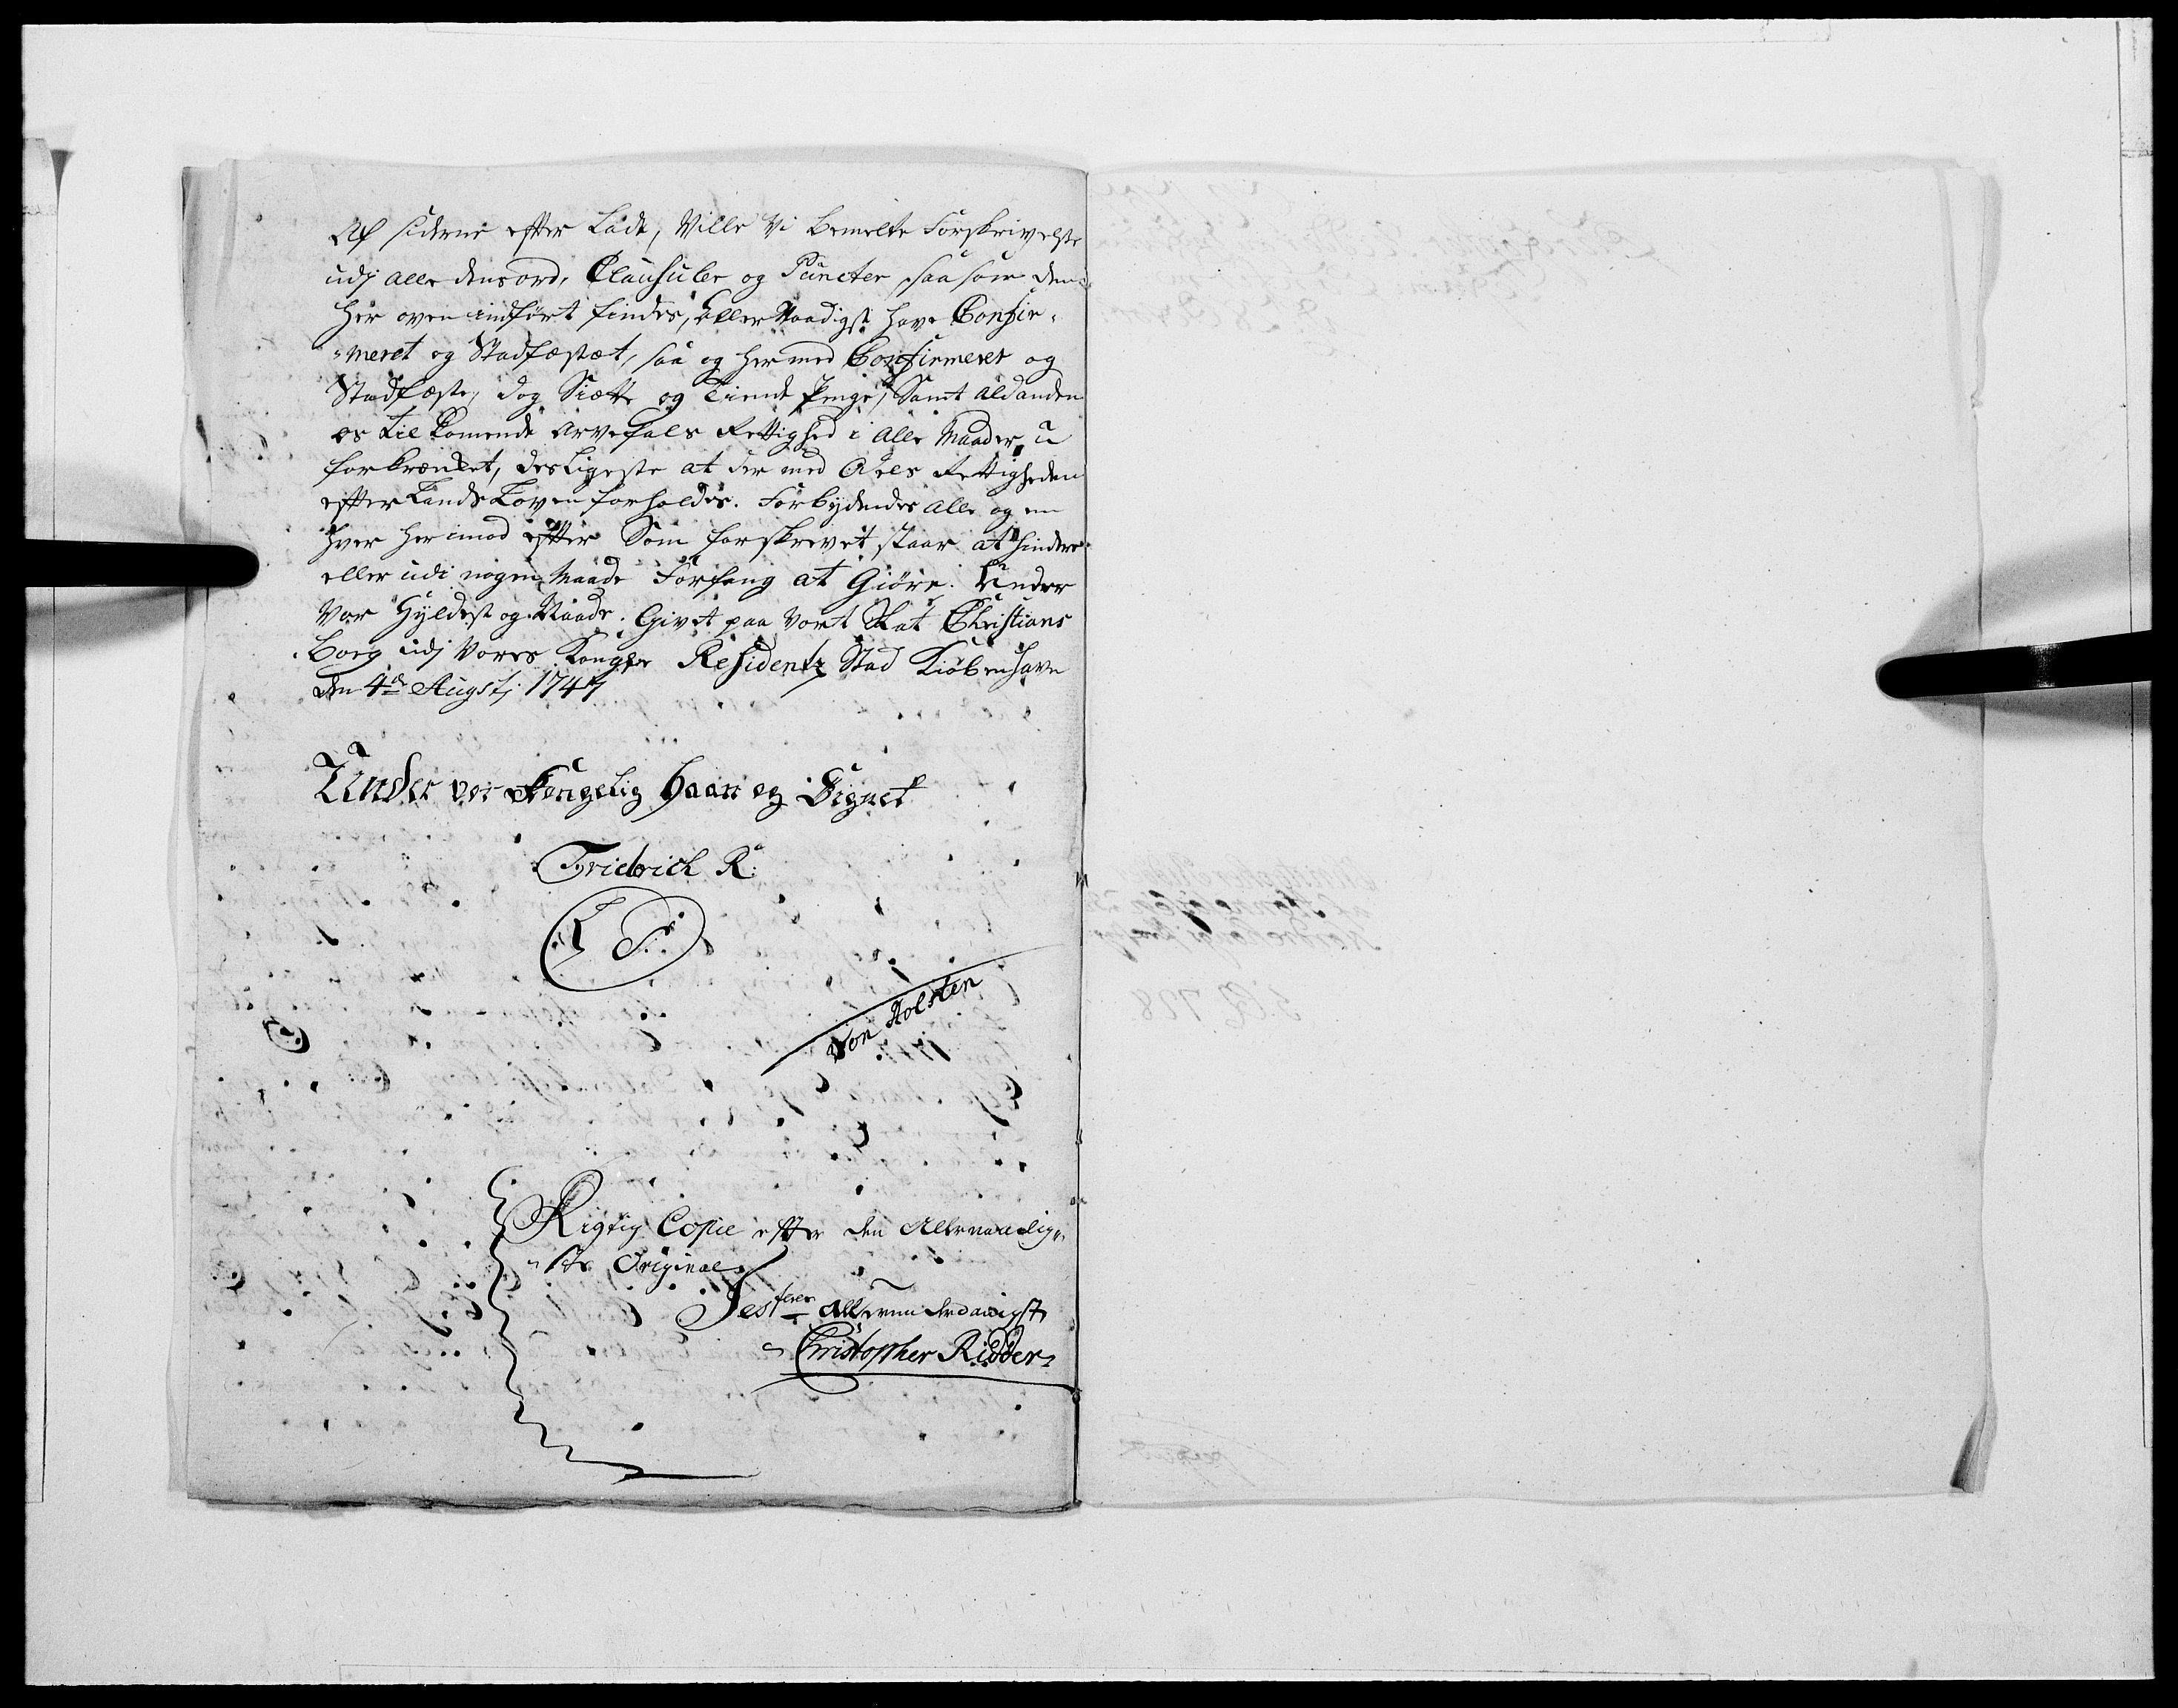 Af siderne efter Lade, Ville Vi bemelte Forskrivelse
udj alle dens ord, Clausuler og Puncter, saasom den
her oven indført findes, Aller Naadigst have Confir„
„meret og Stadfæstet, saa og hermed Confirmerer og
Stadfæste, dog Siætte og Tiende Penge, Samt ald anden
os tilkomende Arvefals Rettighed i alle Maader u
forkrænket, desligeste at der med Odels Rettigheden
efter Lands Loven forholdes. Forbydendes alle og en
hver her imod efter Som forskrevet staar at hindre
eller udi nogen Maade Forfang at Giøre. Under
Vor Hyldest og Naade. Givet paa Vort Slot Christians
Borg udj Vores Konglge Residentz Stad Kiøbenhavn
den 4de Augstj 1747
Under vor Kongelig Haan og Signet
Fridrich R:
L S:
Von Holsten
Rigtig Copie efter den Allernaadig„
„ste Original
Testerer allerunderdanigst
Christopher Ridder